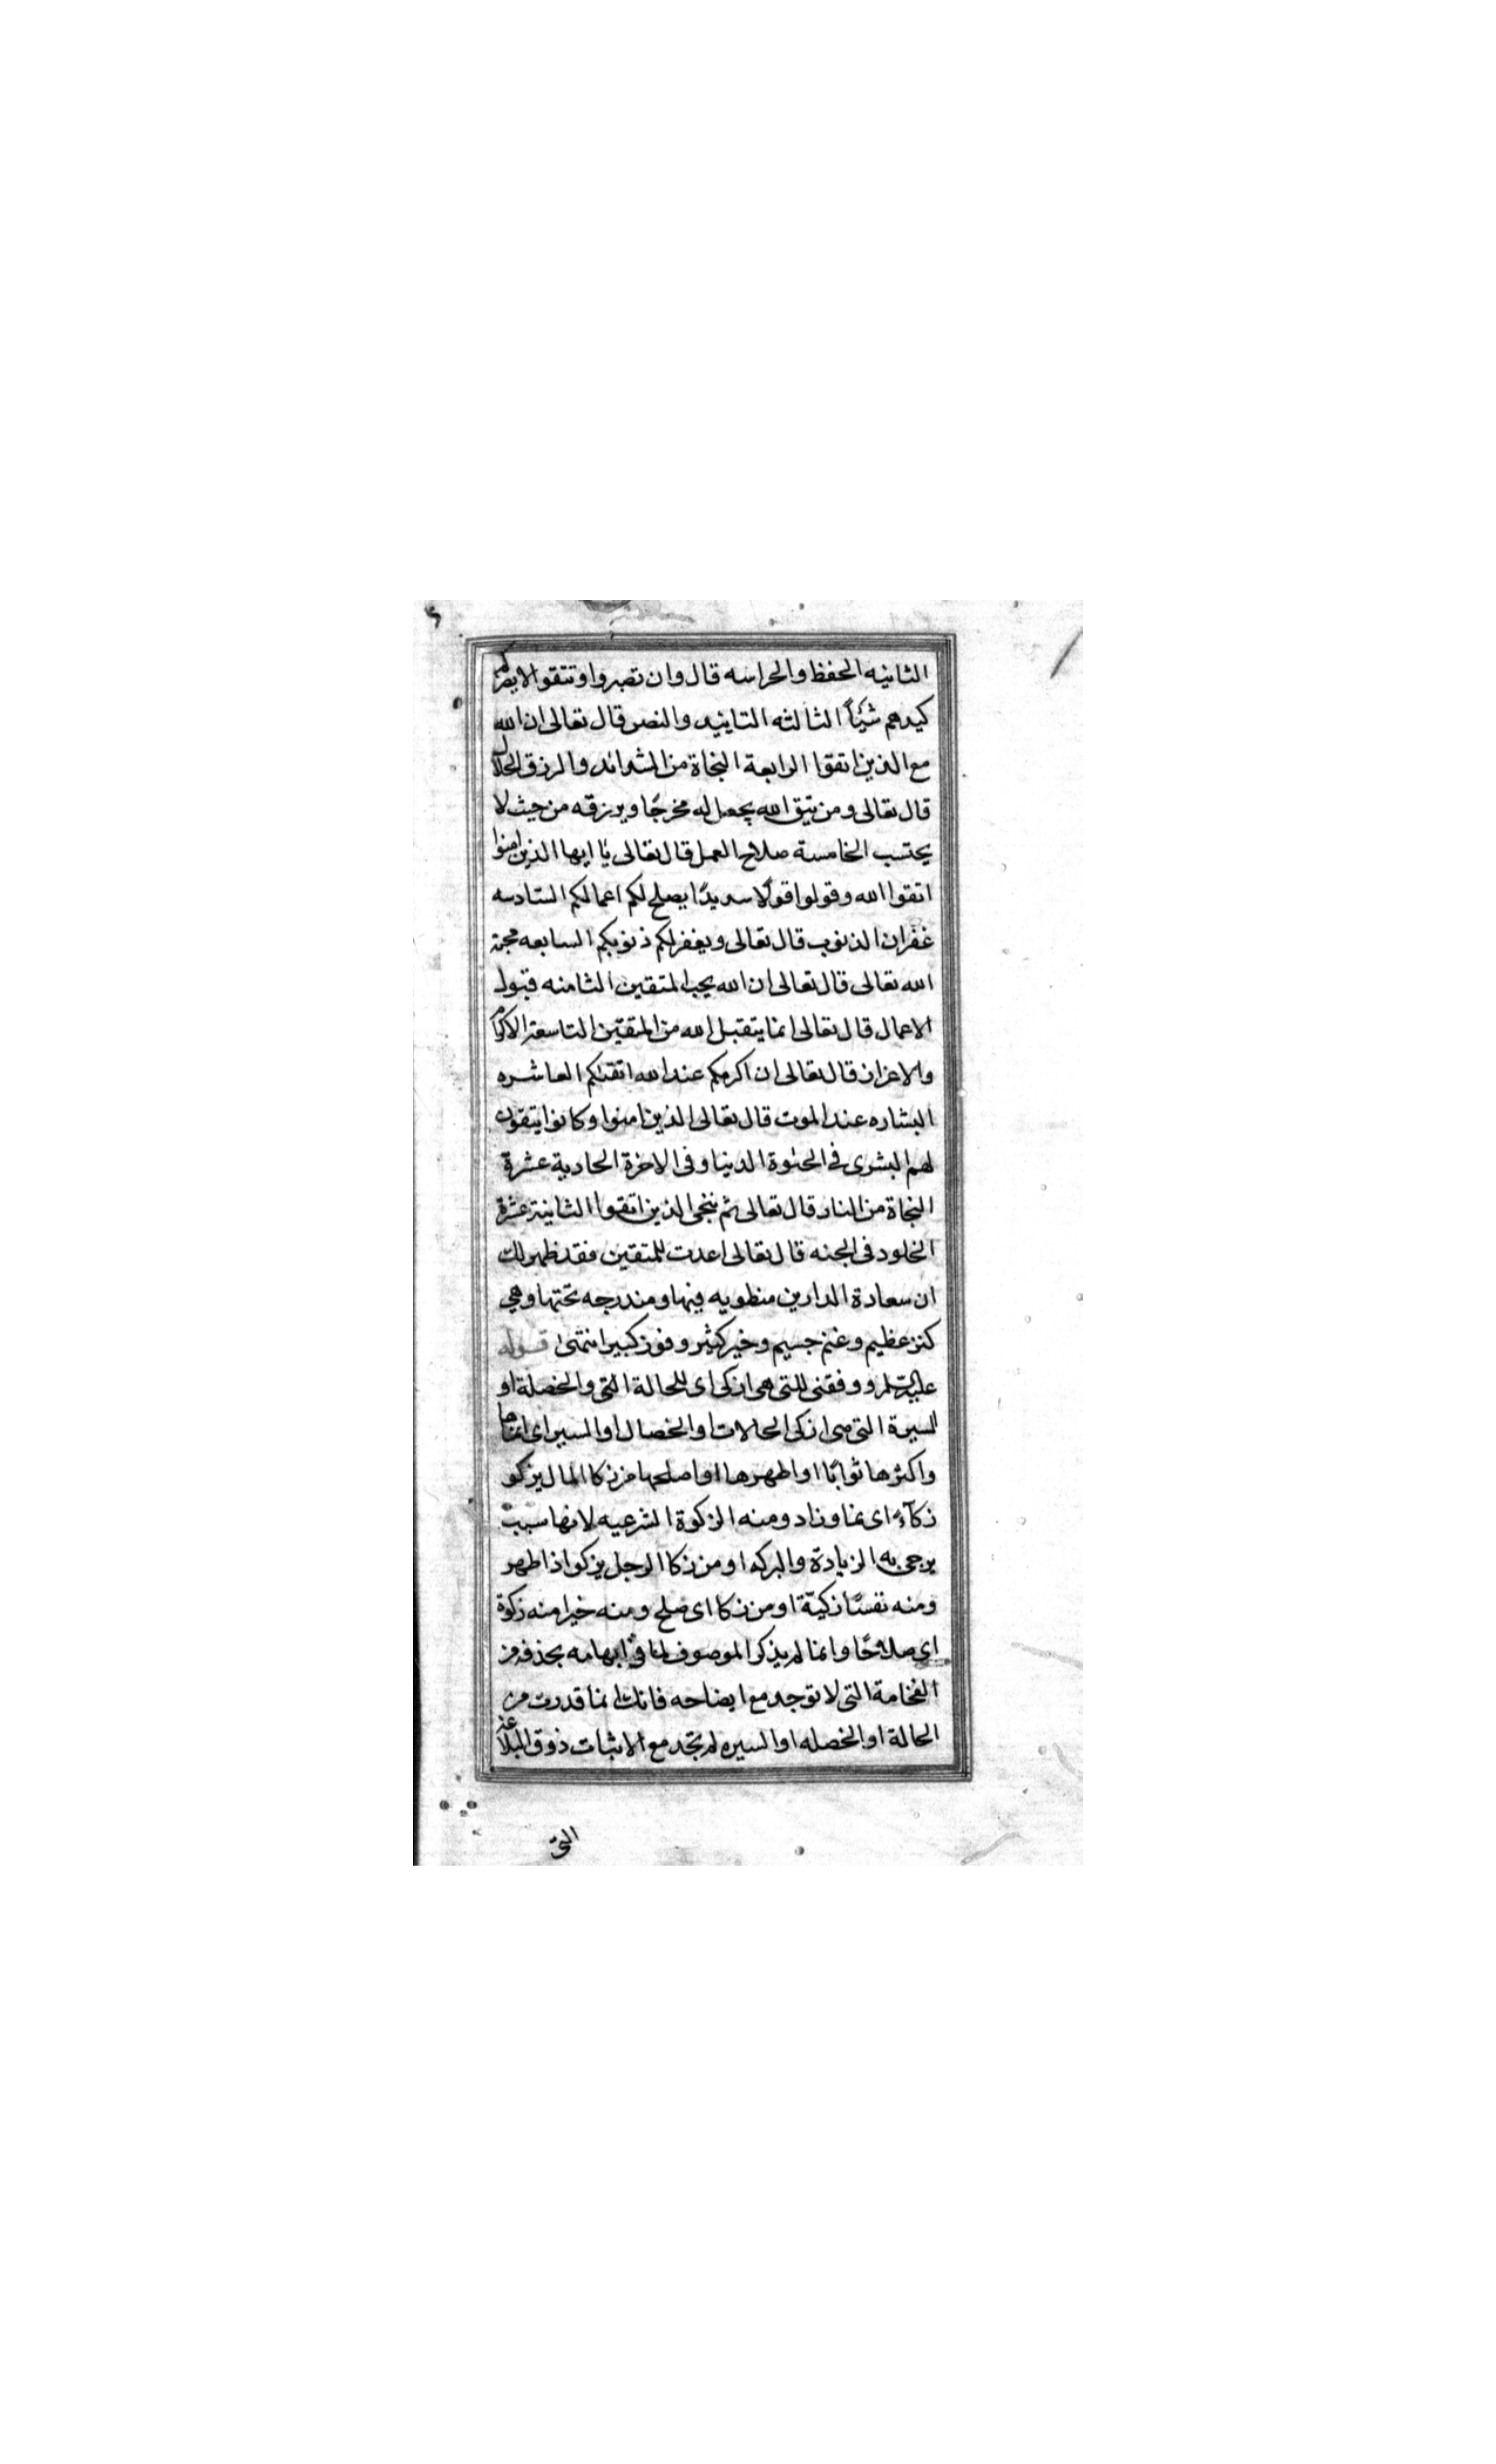 الثانيه الحفظ والحراسه قال وان تصبروا وتتقوا لا يضركم
كيدهم شيئاً الثالثه التاييد والنصر قال تعالى ان الله
مع الذين اتقوا الرابعة النجاة من الشدائد والرزق الحلال
قال تعالى ومن يتق الله يجعل له مخرجًا ويرزقه من حيث لا
يحتسب الخامسة صلاح العمل قال تعالى يا ايها الذين امنوا
اتقوا الله وقولوا قولًا سديدًا يصلح لكم اعمالكم السادسه
غفران الذنوب قال تعالى ويغفر لكم ذنوبكم السابعه محبة
الله تعالى قال تعالى ان الله يحب المتقين الثامنه قبول
الاعمال قال تعالى انما يتقبل الله من المتقين التاسعة الاكرام
والاعزاز قال تعالى ان اكرمكم عند الله اتقيكم العاشره
البشاره عند الموت قال تعالى الذين امنوا وكانوا يتقون
لهم البشرى في الحيوة الدنيا وفى الاخرة الحادية عشرة
النجاة من النار قال تعالى ثم ننجى الذين اتقوا الثانية عشرة
الخلود فى الجنه قال تعالى اعدت للمتقين فقد ظهر لك
ان سعادة الدارين منطويه فيها ومندرجه تحتها وهي
كنز عظيم وغنم جسيم وخير كثير وفوز كبير انتهى قوله
عليه السلم ووفقنى للتى هى ازكى اى للحالة التى والخصلة او
السيرة التى هى ازكى الحالات او الخصال او السير اى انماها
واكثرها ثوابًا او اطهرها او اصلحها من زكا المال يزكو
زكآءً اى نما وزاد ومنه الزكوة الشرعيه لانها سبب
يرجى به الزيادة والبركه او من زكا الرجل يزكو اذا طهر
ومنه نفسًا زكيّة او من زكا اى صلح ومنه خيرا منه زكوة
اى صلاحًا وانما لم يذكر الموصوف لما فى ابهامه بحذفه من
الفخامة التى لا توجد مع ايضاحه فانك انما قدرت من
الحالة او الخصله او السيره لم تجد مع الاثبات ذوق البلاغة
التى